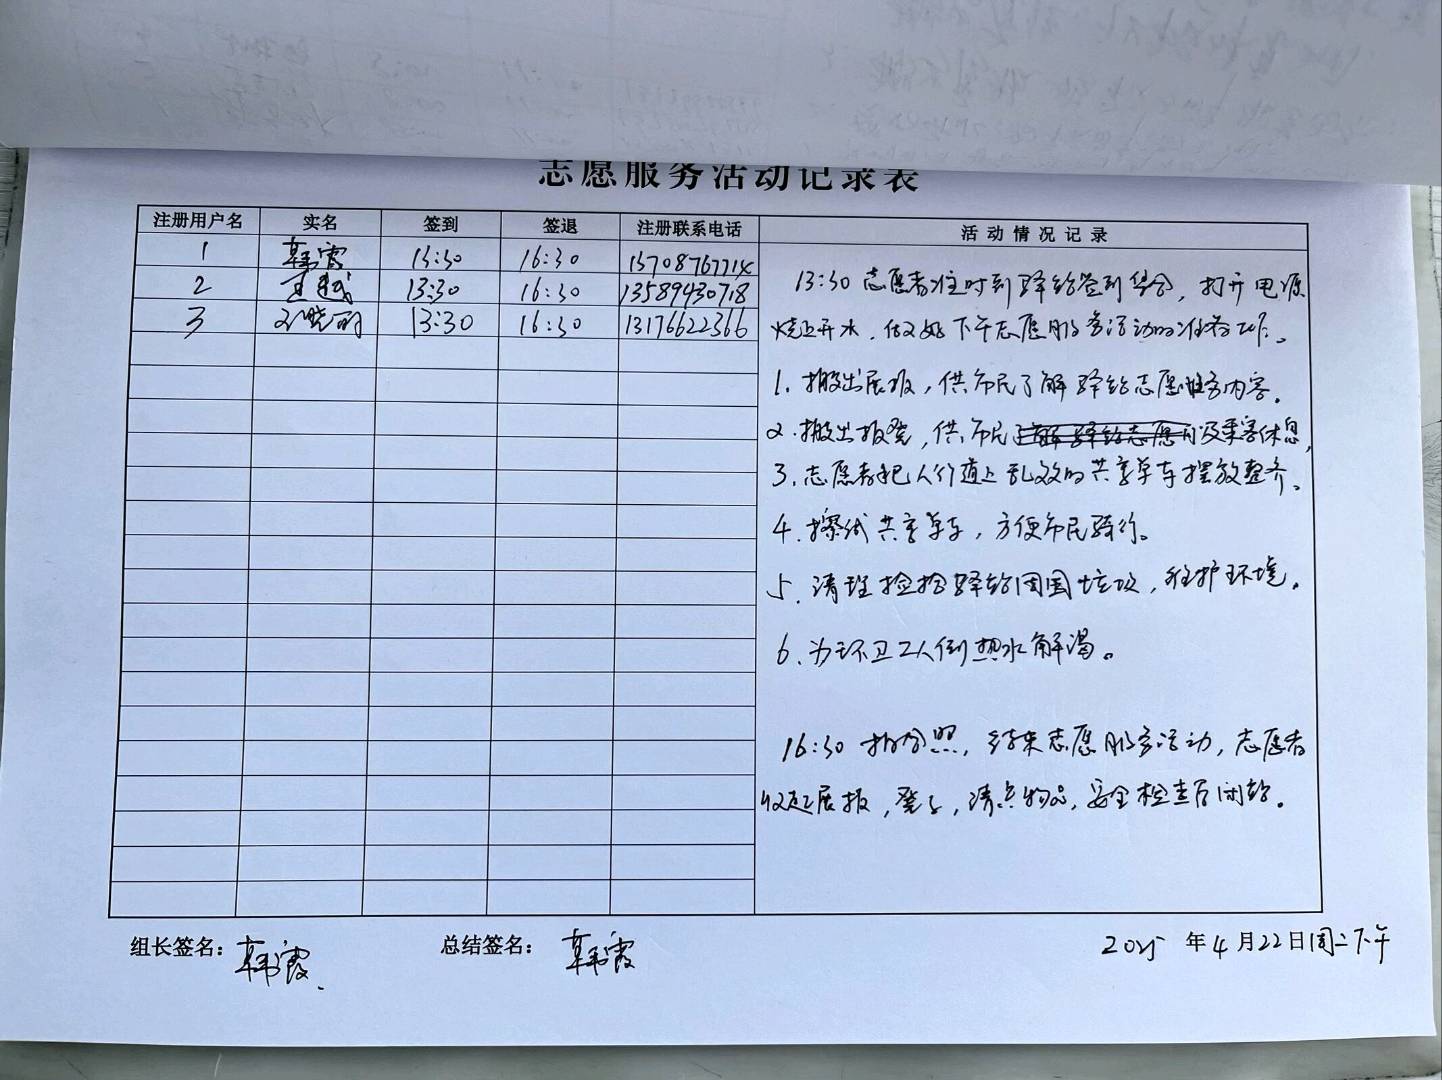 志愿服务活动记录表
注册用户名 实名 签到 签退 注册联系电话 活动情况记录
1 韩霞 13:30 16:30
2 王越 13:30 16:30 13589430718
3 刘晓丽 13:30 16:30 13176622366
13:30 志愿者准时到驿站签到集合，打开电源
烧上开水，做好下午志愿服务活动的准备工作。
1. 搬出展板，供市民了解驿站志愿服务内容。
2. 搬出报凳，供市民及乘客休息，
3. 志愿者把人行道上乱放的共享单车摆放整齐。
4. 擦拭共享单车，方便市民骑行。
5. 清理捡拾驿站周围垃圾，维护环境。
6. 为环卫工人倒热水解渴。
16:30 拍合照，结束志愿服务活动，志愿者
收起展板，凳子，清点物品，安全检查后闭站。
组长签名：韩霞 总结签名：韩霞 2025年4月22日周二下午